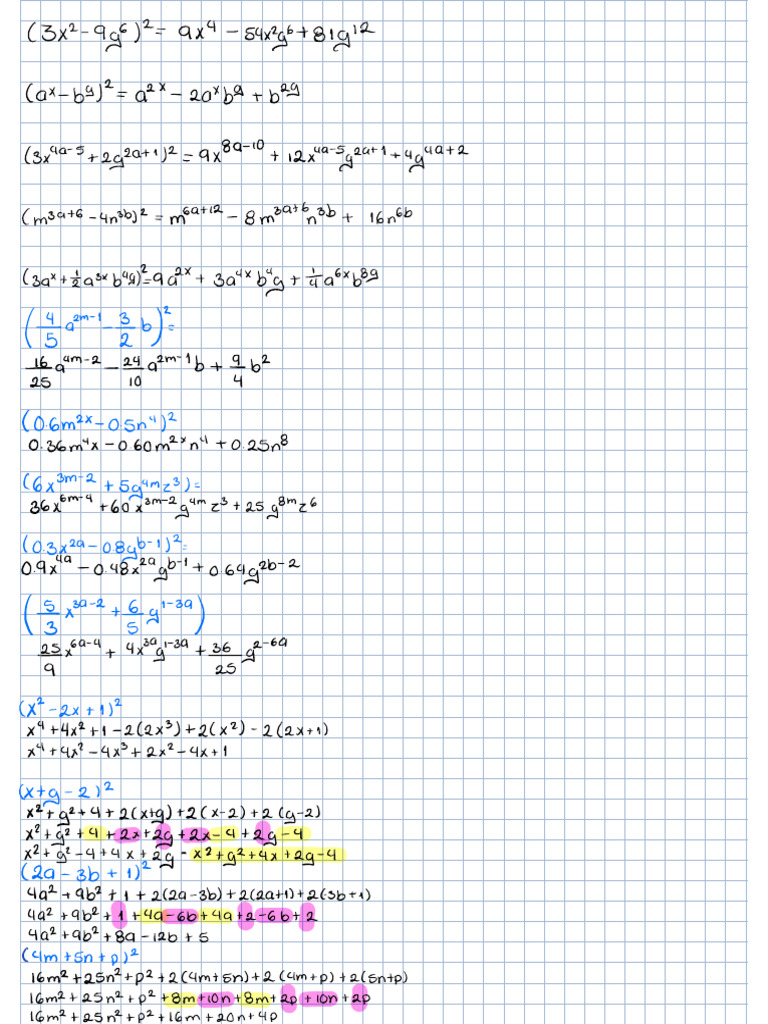 (3x² - 9g⁶)² = 9x⁴ - 54x²g⁶ + 81g¹²
(aˣ - bᵍ)² = a²ˣ - 2aˣbᵍ + b²ᵍ
(3x^(4a-5) + 2g^(2a+1))² = 9x^(8a-10) + 12x^(4a-5)g^(2a+1) + 4g^(4a+2)
(m^(3a+6) - 4n^(3b))² = m^(6a+12) - 8m^(3a+6)n^(3b) + 16n^(6b)
(3aˣ + 1/2 a³ˣb⁴ᵍ)² = 9a²ˣ + 3a⁴ˣb⁴g + 1/4 a⁶ˣb⁸ᵍ
(4/5 a^(2m-1) - 3/2 b)² =
16/25 a^(4m-2) - 24/10 a^(2m-1)b + 9/4 b²
(0.6m²ˣ - 0.5n⁴)²
0.36m⁴x - 0.60m²ˣn⁴ + 0.25n⁸
(6x^(3m-2) + 5g^(4m)z³) =
36x^(6m-4) + 60x^(3m-2)g^(4m)z³ + 25g^(8m)z⁶
(0.3x^(2a) - 0.8g^(b-1))² =
0.9x^(4a) - 0.48x^(2a)g^(b-1) + 0.64g^(2b-2)
(5/3 x^(3a-2) + 6/5 g^(1-3a))
25/9 x^(6a-4) + 4x^(3a)g^(1-3a) + 36/25 g^(2-6a)
(x² - 2x + 1)²
x⁴ + 4x² + 1 - 2(2x³) + 2(x²) - 2(2x+1)
x⁴ + 4x² - 4x³ + 2x² - 4x + 1
(x + g - 2)²
x² + g² + 4 + 2(x+g) + 2(x-2) + 2(g-2)
x² + g² + 4 + 2x + 2g + 2x - 4 + 2g - 4
x² + g² - 4 + 4x + 2g - x² + g² + 4x + 2g - 4
(2a - 3b + 1)²
4a² + 9b² + 1 + 2(2a-3b) + 2(2a+1) + 2(3b+1)
4a² + 9b² + 1 + 4a - 6b + 4a + 2 - 6b + 2
4a² + 9b² + 8a - 12b + 5
(4m + 5n + p)²
16m² + 25n² + p² + 2(4m+5n) + 2(4m+p) + 2(5n+p)
16m² + 25n² + p² + 8m + 10n + 8m + 2p + 10n + 2p
16m² + 25n² + p² + 16m + 20n + 4p